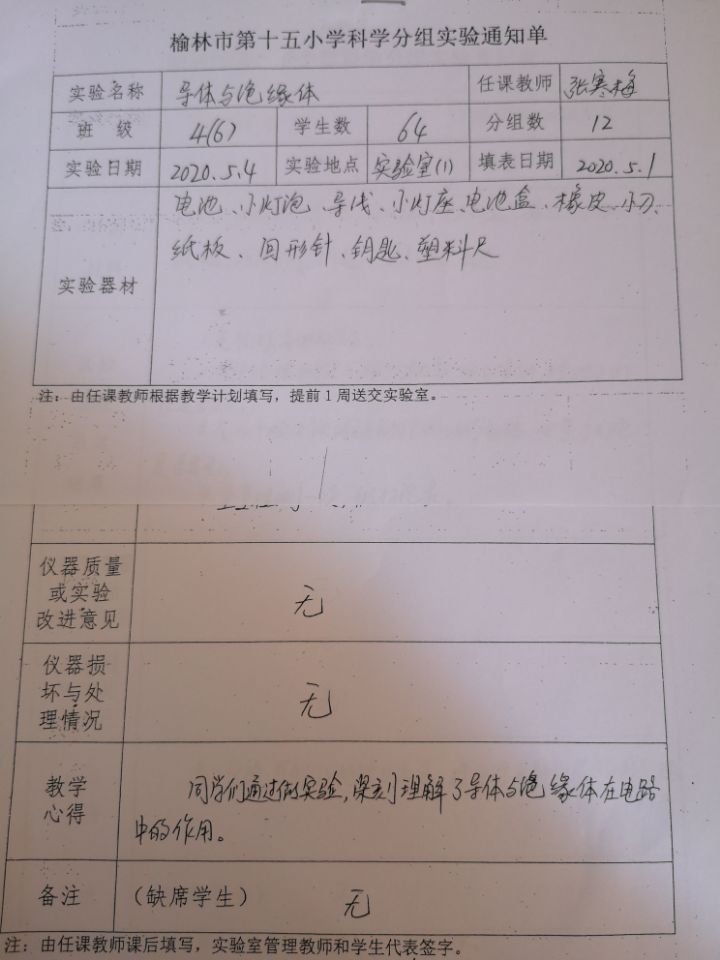 榆林市第十五小学科学分组实验通知单
实验名称 导体与绝缘体 任课教师 张寒梅
班 级 4(6) 学生数 64 分组数 12
实验日期 2020.5.4 实验地点 实验室(1) 填表日期 2020.5.1
电池、小灯泡、导线、小灯座、电池盒、橡皮、小刀、
纸板、回形针、钥匙、塑料尺
实验器材
注：由任课教师根据教学计划填写，提前1周送交实验室。
仪器质量
或实验
改进意见
无
仪器损
坏与处
理情况
无
教学
心得
同学们通过做实验，深刻理解了导体与绝缘体在电路
中的作用。
备注 （缺席学生） 无
注：由任课教师课后填写，实验室管理教师和学生代表签字。